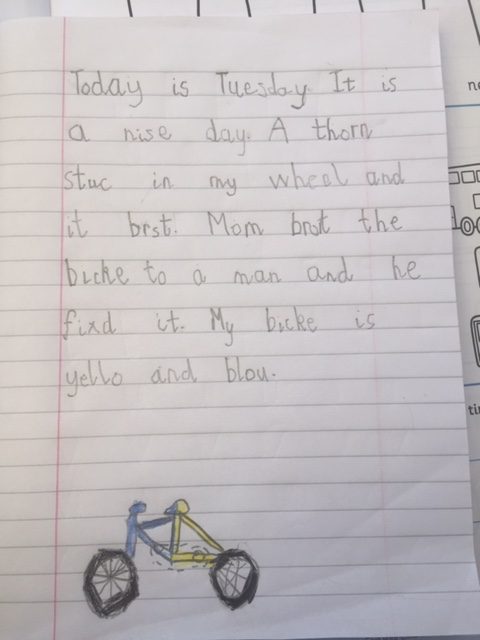 Today is Tuesday. It is
a nise day. A thorn
stuc in my wheel and
it brst. Mom brot the
bicke to a man and he
fixd it. My bicke is
yello and blou.